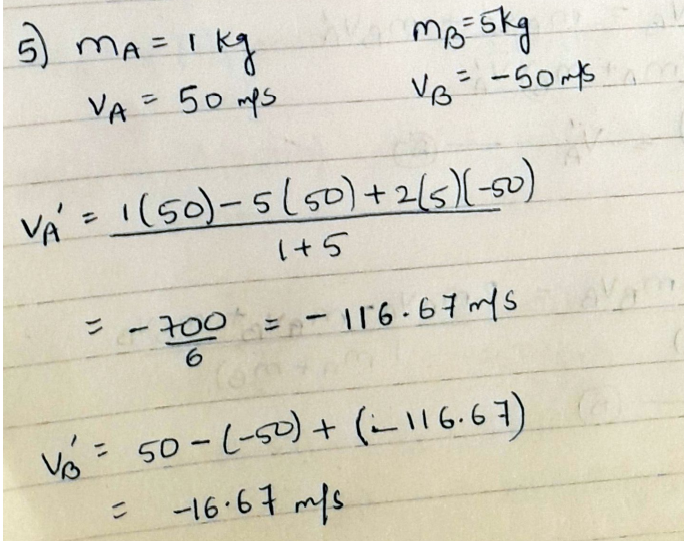 5) mA = 1 kg mB = 5kg
vA = 50 m/s vB = -50 m/s
vA' = 1(50) - 5(50) + 2(5)(-50)
1 + 5
= - 700 = - 116.67 m/s
6
vB' = 50 - (-50) + (-116.67)
= -16.67 m/s